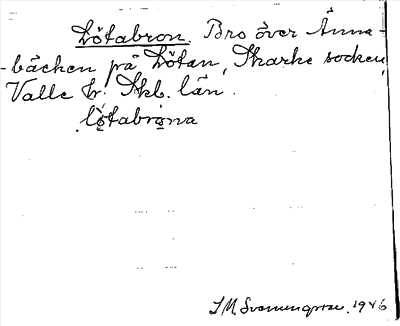 Lötabron. Bro över Änna-
-bäcken på Lötan, Skarke socken,
Valle hr. Skb. län.
lo̤tabro̤na
S.M. Svenungsson. 1946